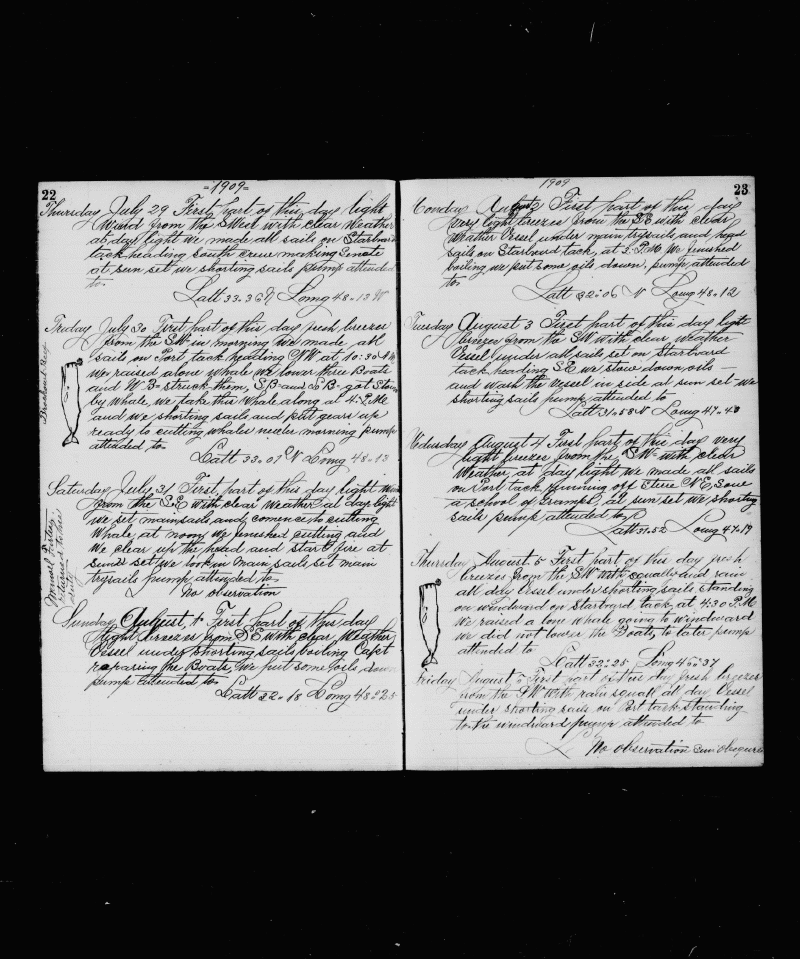 22
=1909=
Thursday July 29 First part of this day light
Wind from the SWest with clear Weather
at day light we made all sails on Starboard
tack heading South crew making Senate
at sun set we shorting sails pump attended
to.
Latt 33.36 N Long 48.13 W
Friday July 30 First part of this day fresh breezes
from the SW in morning we made all
sails on Port tack heading NW at 10:30 AM
we raised alone whale we lower three Boats
and W B= struck them, SB= and B= got Stove
by whale, we take this Whale along at 4. P.M.
and we shorting sails and put gears up
ready to cutting whales next morning pump
attended to
Latt 33.07 N Long 48.13
Saturday July 31 First part of this day light
from the S.E with clear Weather at day light
we set mainsails and comence to cutting
Whale at noon we finished cutting and
We clear up the head and start fire at
sun set we took in Main sails set main
trysails pump attended to.
No observation
Sunday August 1. First part of this day
light breezes from SE with clear Weather
Vessel under shorting sails boiling Capt
reparing the Boats We put some oils down
pump attended to.
Latt 32.18 Long 48.23
1909
23
Monday August 2 First part of this day
very light breezes from the SE with clear
Weather Vessel under main trysails and head
sails on Starbord tack, at 3. P.M. We finished
boiling we put some oils down, pump attended
to.
Latt 32.06 N Long 48.12
Tuesday August 3 First part of this day light
breezes from the SW with clear weather
Vessel under all sails set on Starbord
tack heading SE we stow down oils
and wash the vessel in side at sun set we
shorting sails pump attended to
Latt 31.50 N Long 47.40
Wednesday August 4 First part of this day very
light breeze from the SW with clear
Weather, at day light we made all sails
on Port tack running off Stere NE, Sone
a school of Grampus, at sun set we shorting
sails pump attended to,
Latt 31.52 Long 47.19
Thursday August 5 First part of this day fresh
breezes from the SW with squalls and rain
all day Vessel under shorting sails standing
on windward on Starbord tack, at 4:30 P.M
We raised a lone whale going to windward
we did not lower the Boats, to later pump
attended to
Latt 32.25 Long 46.37
Friday August 6 First part of this day fresh breezes
from the SW with rain squall all day Vessel
under shorting sails on Port tack standing
to the windward pump attended to
No observation Sun obsqure